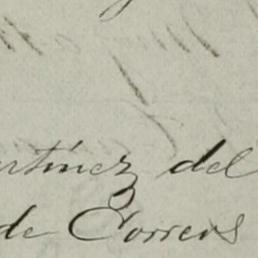 rtinez del
de Correos